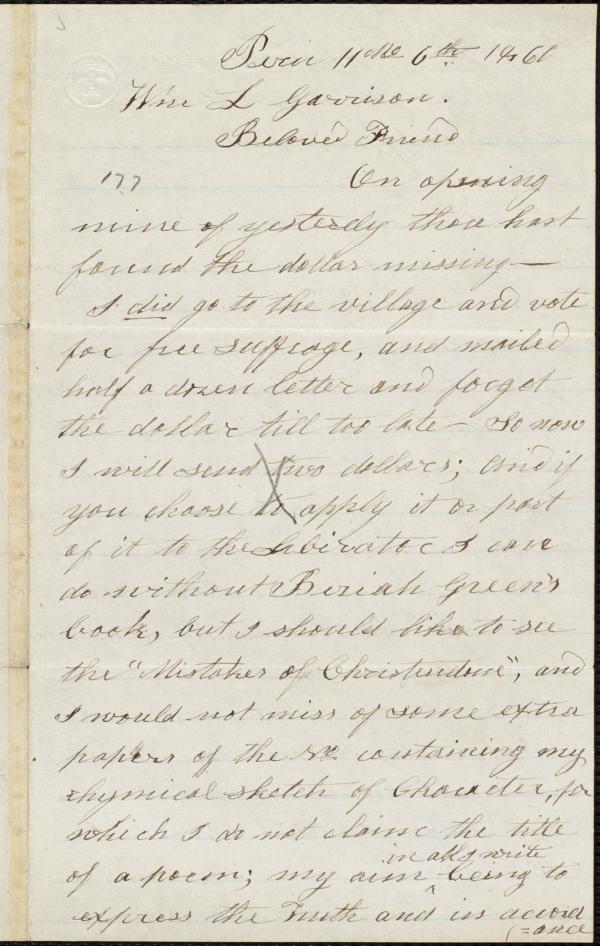 Peru 11 Mo 6th 1860
Wm L Garrison.
Beloved Friend
177
On opening
mine of yesterdy thou hast
found the dollar missing—
I did go to the village and vote
for free suffrage, and mailed
half a dozen letter and forgot
the dollar till too late— So now
I will send two dollars; and if
you choose to apply it or part
of it to the Liberator I can
do without Beriah Green's
book, but I should like to see
the "Mistakes of Christendom", and
I would not miss of some extra
papers of the No containing my
rhymical sketch of Character, for
which I do not claim the title
of a poem; my aim in all I write being to
express the Truth and in accord
(=ance